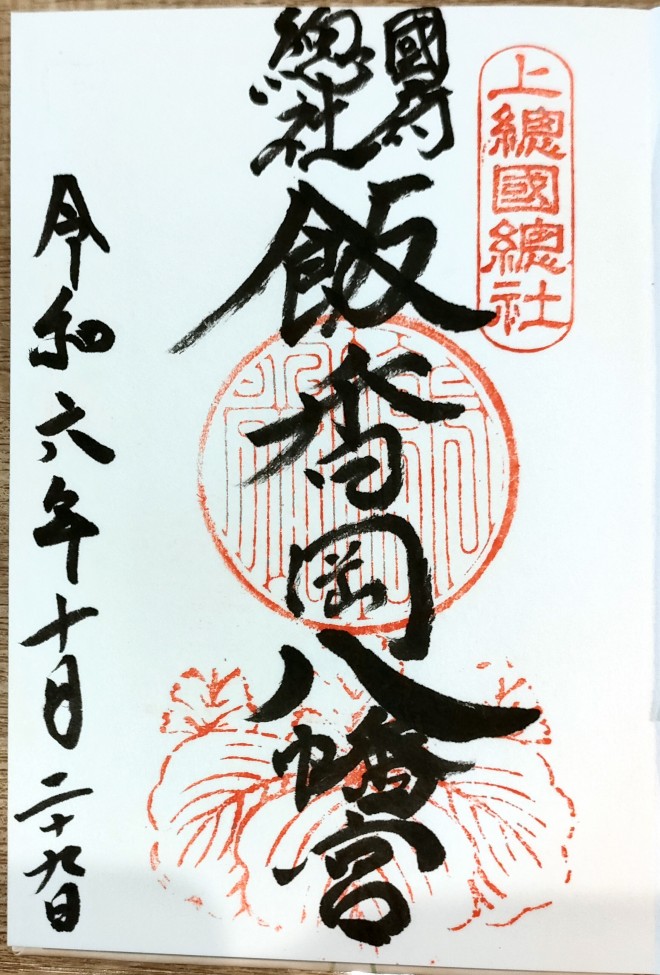 上總國總社
國府
總社
飯香岡八幡宮
令和六年十月二十九日